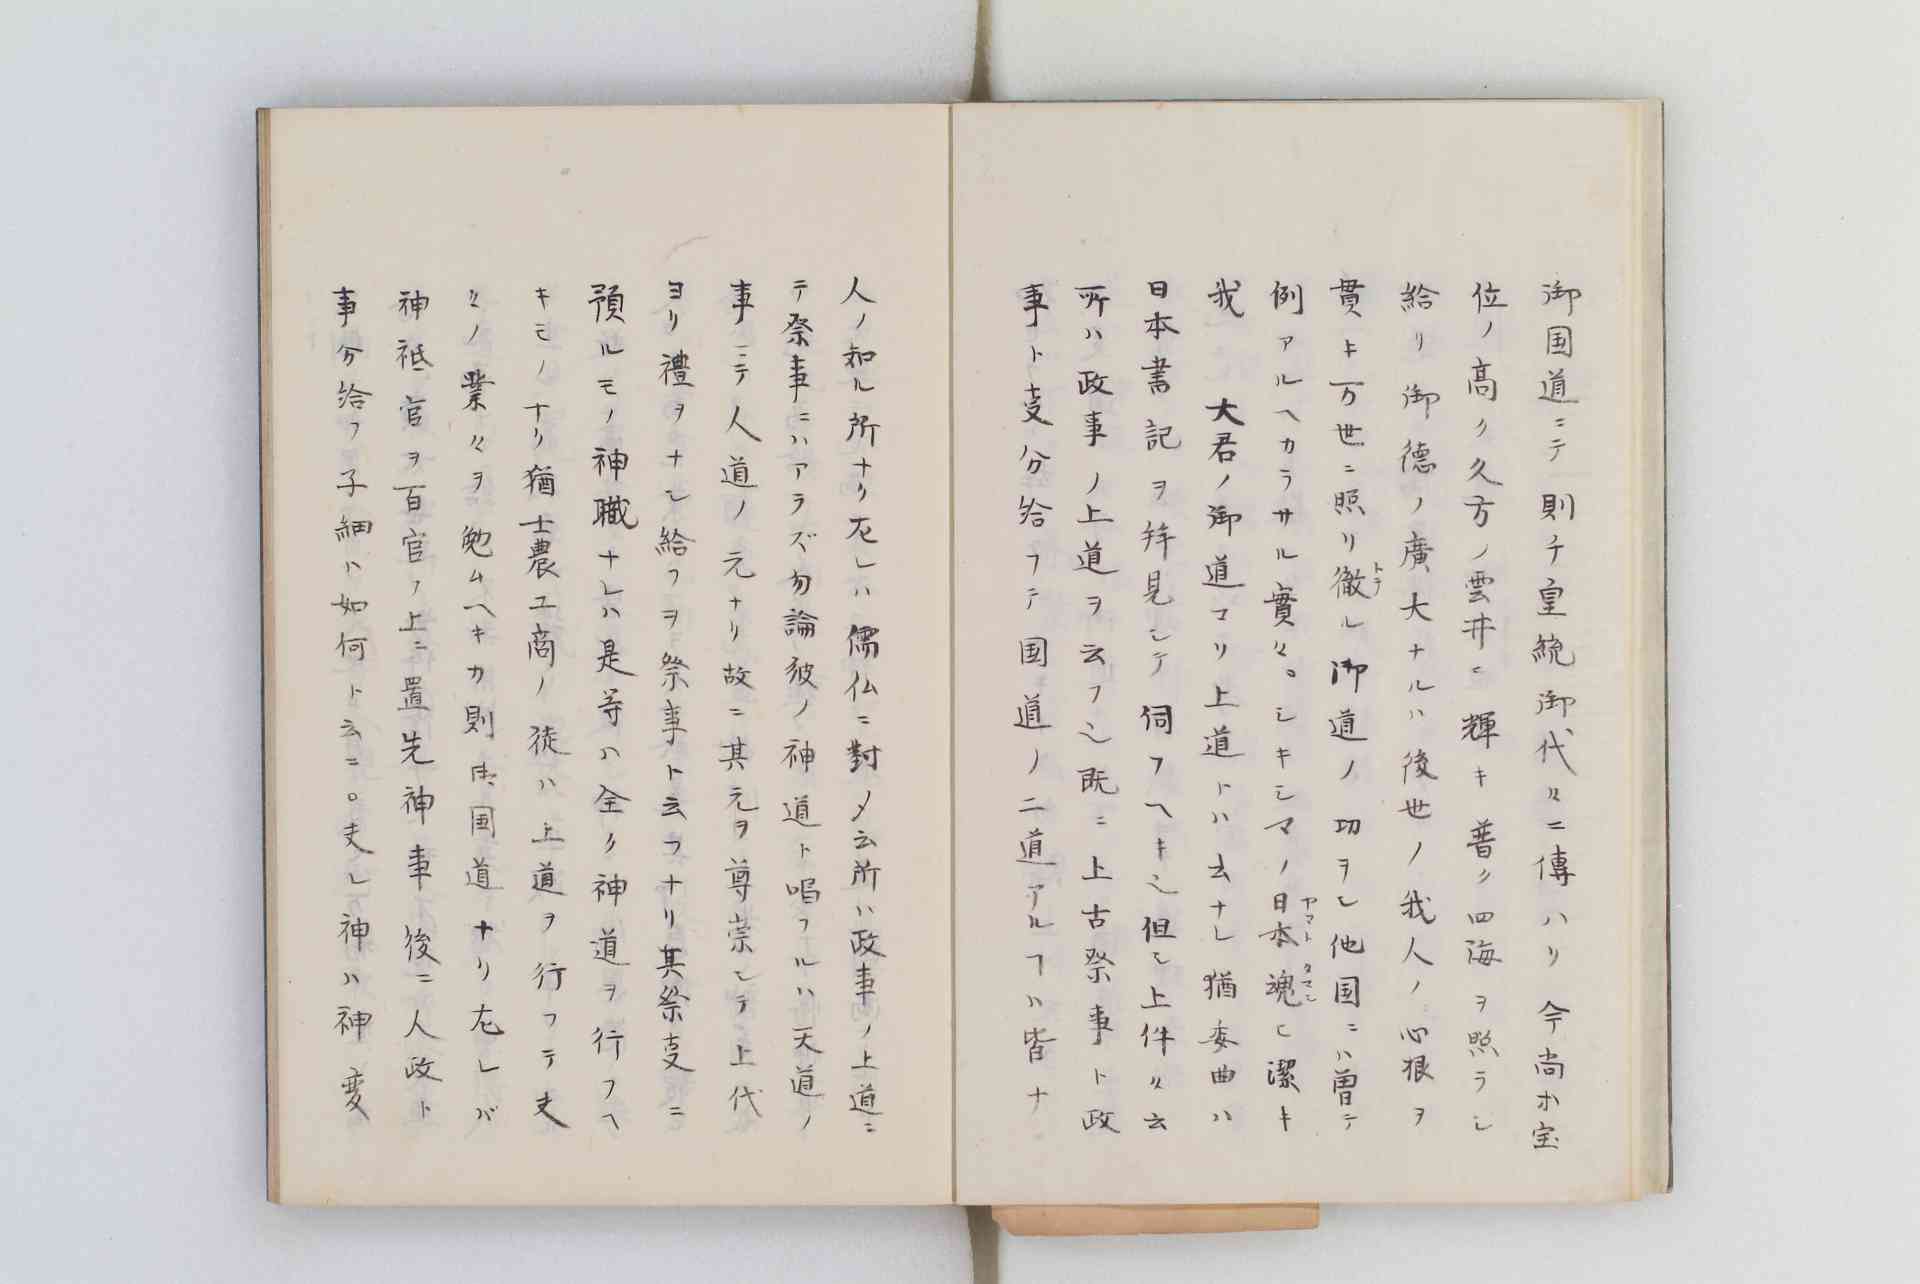 御国道ニテ則チ皇統御代々ニ傳ハリ今尚ホ宝
位ノ高ク久方ノ雲井ニ輝キ普ク四海ヲ照ラシ
給リ御德ノ廣大ナルハ後世ノ我人ノ心根ヲ
貫キ万世ニ照リ徹ル御道ノ功ヲシ他国ニハ曽テ
トテ
例アルヘカラサル實々。シキシマノ日本魂ヒ潔キ
ヤマト タマシ
我　大君ノ御道マリ上道トハ云ナレ猶委曲ハ
日本書記ヲ拝見シテ伺フヘキ也但シ上件々云
所ハ政事ノ上道ヲ云フ也既ニ上古祭事ト政
事ト支分給フテ国道ノ二道アルヿハ皆ナ
人ノ知ル所ナリ左レハ儒仏ニ對メ云所ハ政事ノ上道ニ
テ祭事ニハアラズ勿論彼ノ神道ト唱フルハ天道ノ
事ニテ人道ノ元ナリ故ニ其元ヲ尊崇シテ上代
ヨリ禮ヲナシ給フヲ祭事ト云フナリ其祭支ニ
預ルモノ神職ナレハ是等ハ全ク神道ヲ行フヘ
キモノナリ猶士農工商ノ徒ハ上道ヲ行フテ夫
々ノ業々ヲ勉ムヘキカ則御国道ナリ左レバ
神祇官ヲ百官ノ上ニ置先神事後ニ人政ト
事分給フ子細ハ如何ト云ニ○夫レ神ハ神変